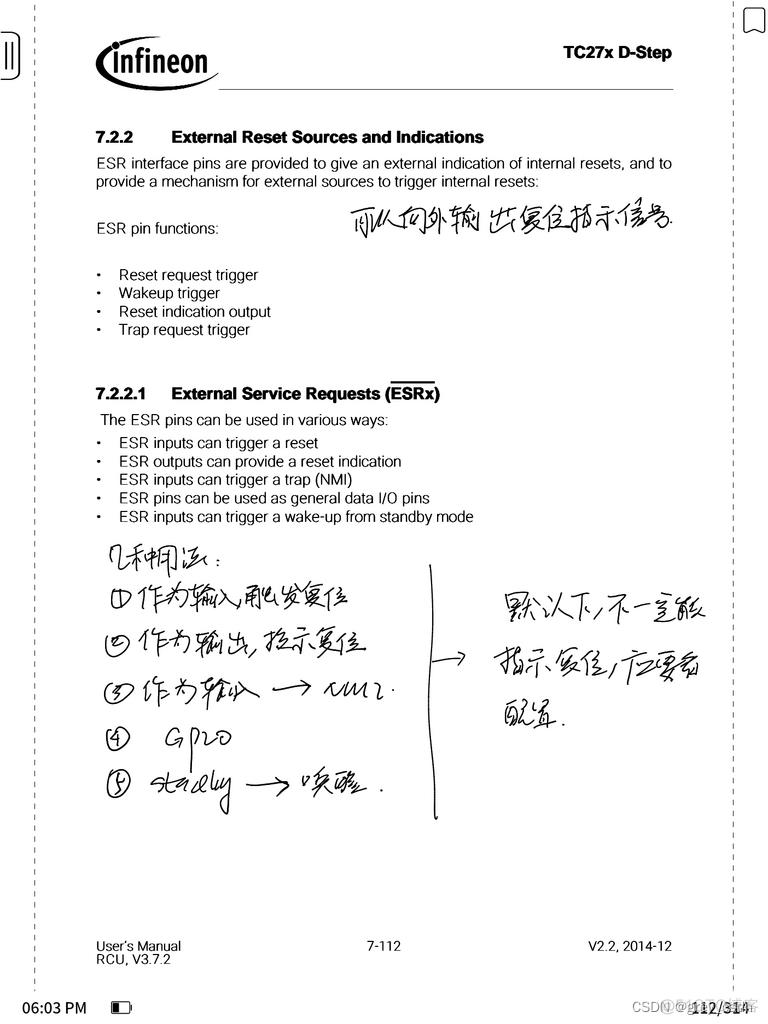 infineon
TC27x D-Step
7.2.2 External Reset Sources and Indications
ESR interface pins are provided to give an external indication of internal resets, and to
provide a mechanism for external sources to trigger internal resets:
可以向外输出复位指示信号.
ESR pin functions:
• Reset request trigger
• Wakeup trigger
• Reset indication output
• Trap request trigger
7.2.2.1 External Service Requests (ESRx)
The ESR pins can be used in various ways:
• ESR inputs can trigger a reset
• ESR outputs can provide a reset indication
• ESR inputs can trigger a trap (NMI)
• ESR pins can be used as general data I/O pins
• ESR inputs can trigger a wake-up from standby mode
几种用法:
① 作为输入,触发复位
② 作为输出,指示复位
③ 作为输入 → NMI.
④ GPIO
⑤ standby → 唤醒.
→ 默认下,不一定能
指示复位,应要
配置.
User's Manual 7-112 V2.2, 2014-12
RCU, V3.7.2
06:03 PM
CSDN
112/314